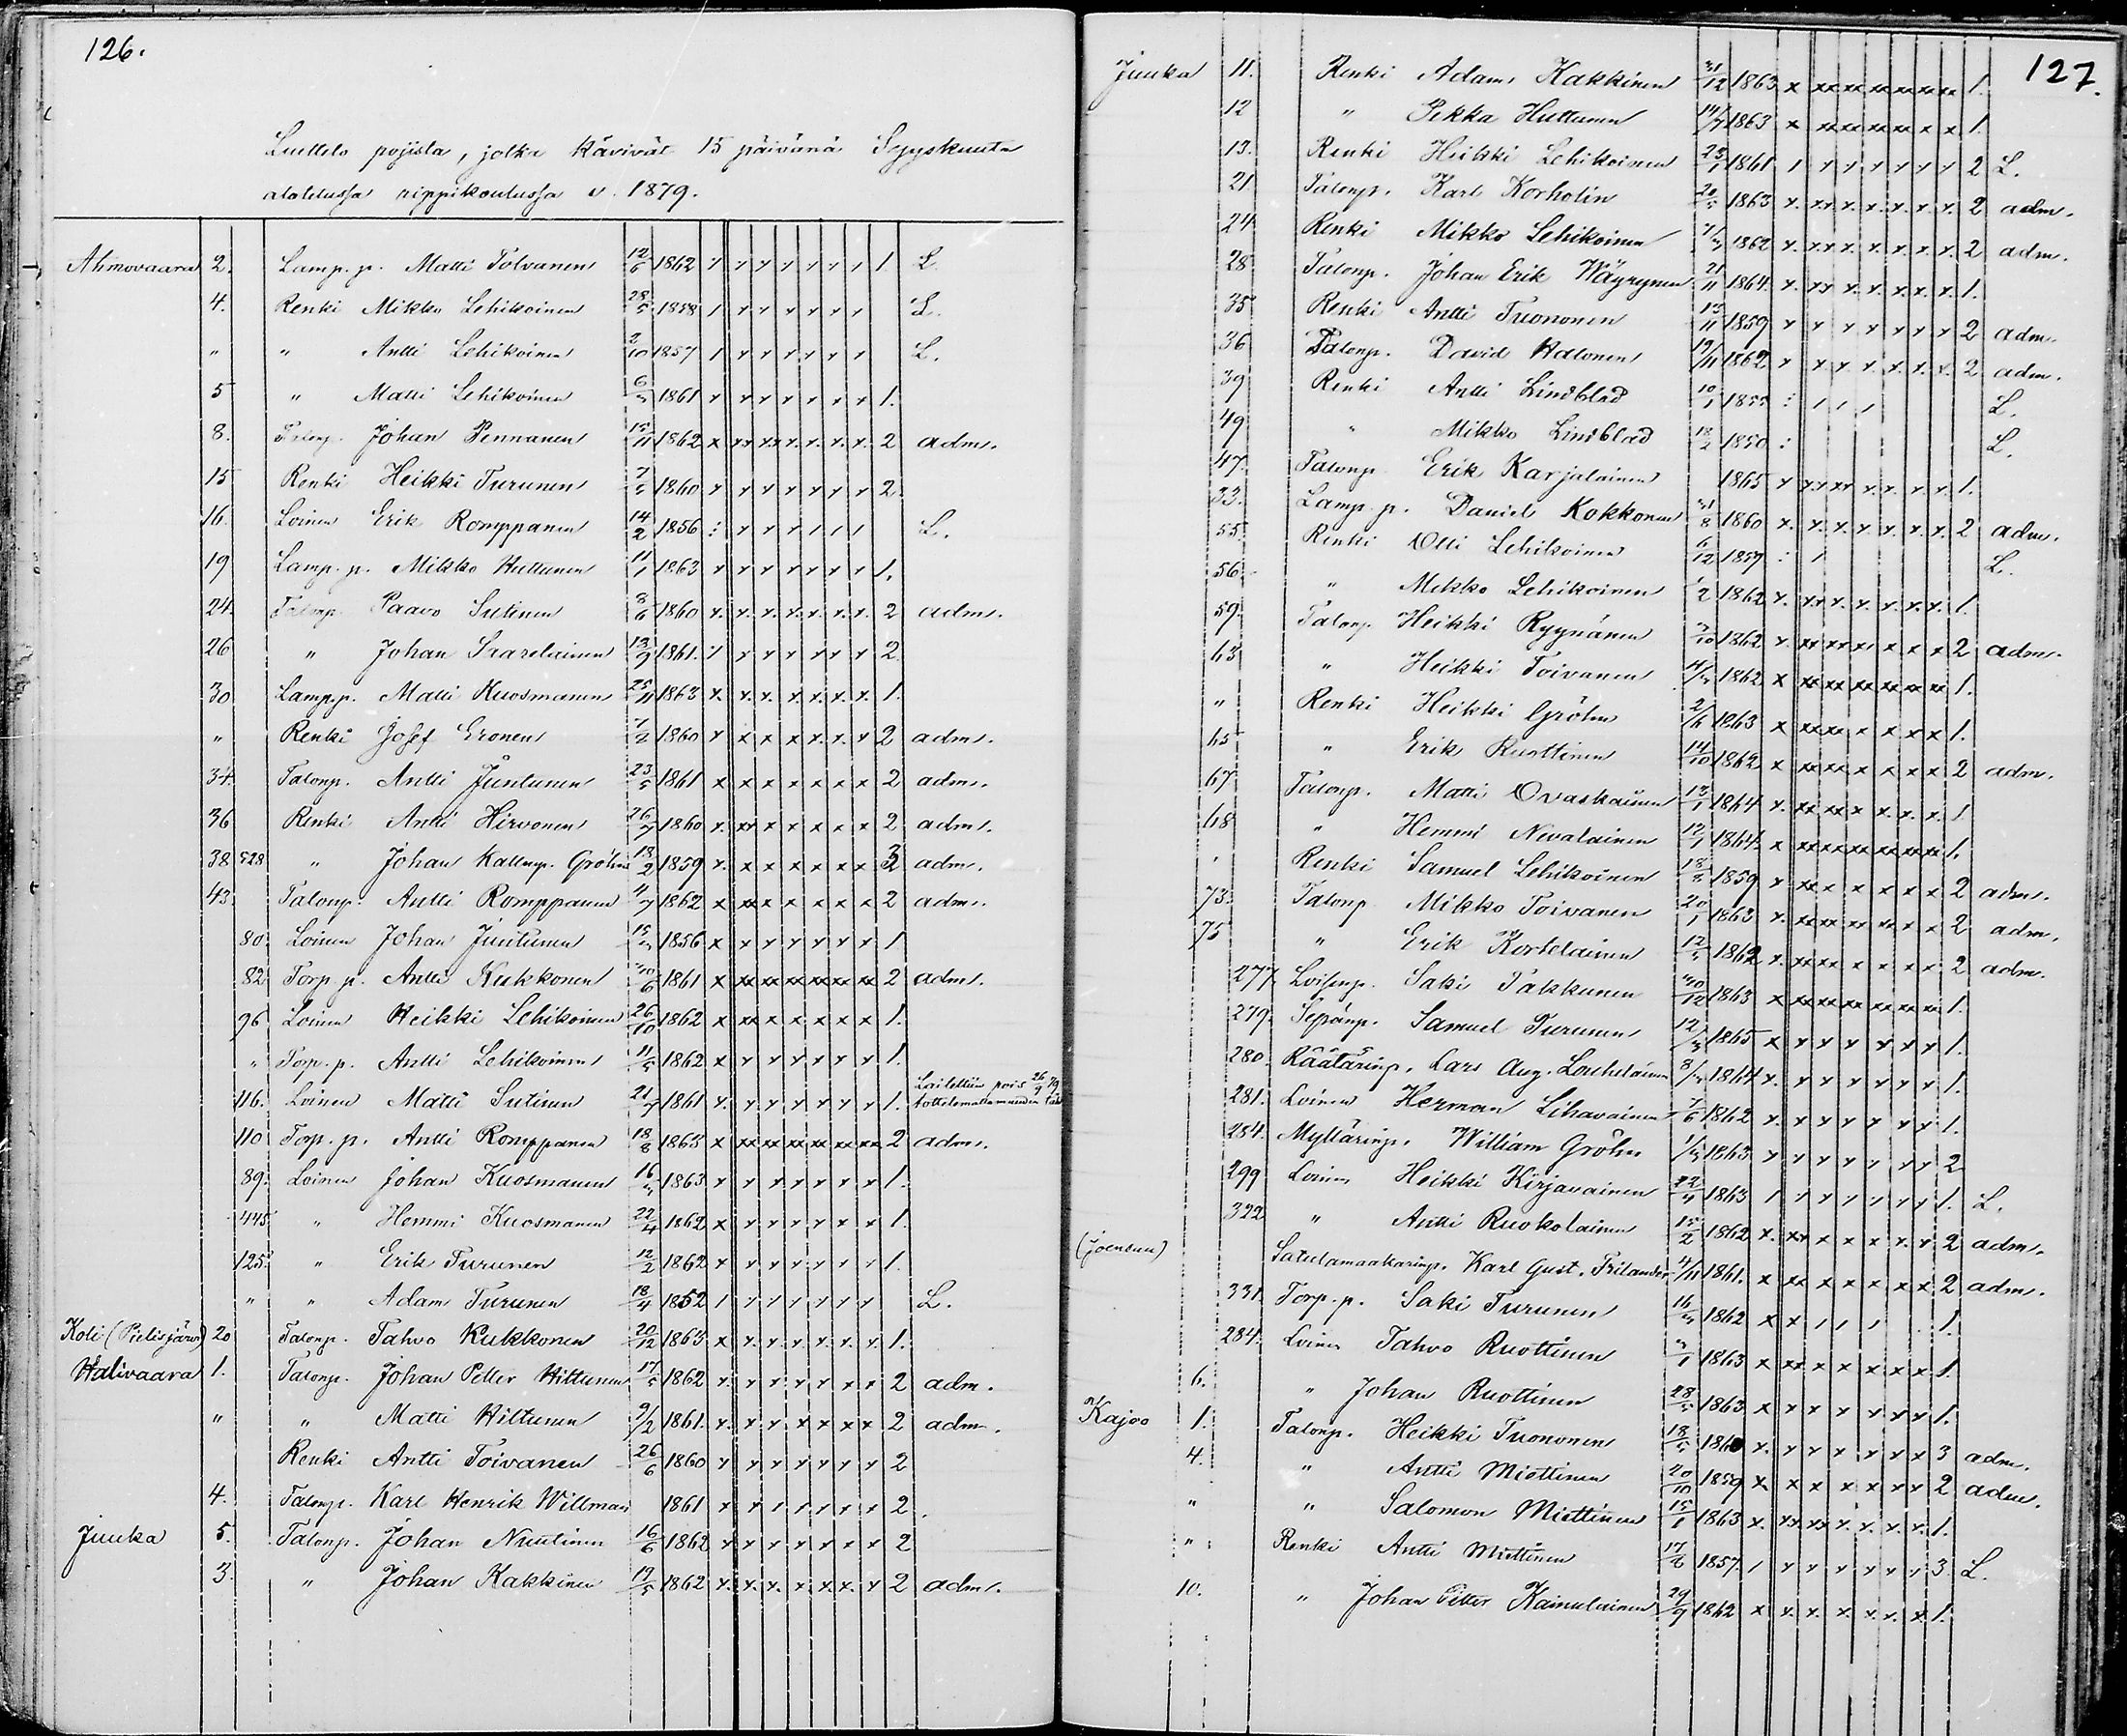 126.
Luettelo pojista, jotka kävivät 15 päivänä Syyskuuta
alotetussa rippikoulussa v. 1879.
Ahmovaara 2. Lamp. p. Matti Tolvanen 12/6 1862 1. L.
4. Renki Mikko Lehikoinen 28/5 1858 L.
" " Antti Lehikoinen 2/10 1857 L.
5 " Matti Lehikoinen 6/3 1861 1.
8. Talonp. Johan Pennanen 15/11 1862 2 adm.
15 Renki Heikki Turunen 7/5 1860 2.
16. Loinen Erik Romppanen 14/2 1856 L.
19 Lamp. p. Mikko Huttunen 11/1 1863 1.
24. Talonp. Paavo Sutinen 8/6 1860 2 adm.
26 " Johan Saarelainen 13/9 1861. 2
30 Lamp.p. Matti Kuosmanen 25/11 1863 1.
" Renki Josef Eronen 1/2 1860 2 adm.
34. Talonp. Antti Juntunen 23/5 1861 2 adm.
36 Renki Antti Hirvonen 26/7 1860 2 adm.
38. 528 " Johan Kallenp. Gröhn 18/2 1859 adm.
43. Talonp. Antti Romppanen 4/7 1862 2 adm.
80. Loinen Johan Juntunen 1856 1
82 Torp. p. Antti Kukkonen 30/6 1861 2 adm.
96 Loinen Heikki Lehikoinen 26/10 1862 1.
" Torp. p. Antti Lehikoinen 11/5 1862 1.
116. Loinen Matti Sutinen 21/7 1861 1. Laitettiin pois 26/9 79 tottelemattomuuden
110 Torp. p. Antti Romppanen 18/8 1863 2 adm.
89. Loinen Johan Kuosmanen 16/3 1863 1.
445 " Hemmi Kuosmanen 22/4 1862 1.
125. " Erik Turunen 12/2 1862 1.
" " Adam Turunen 18/4 1852 L.
Koli (Pielisjärvi) 20 Talonp. Tahvo Kukkonen 20/12 1863 1.
Halivaara 1. Talonp. Johan Petter Hiltunen 17/5 1862 2 adm.
" " Matti Hiltunen 9/2 1861. 2 adm.
Renki Antti Toivanen 26/6 1860 2
4. Talonp. Karl Henrik Willman 1861 2
Juuka 5. Talonp. Johan Nuutinen 16/6 1862 2
3. " Johan Kakkinen 19/5 1862 2 adm.
127.
Juuka 11. Renki Adam Kakkinen 31/12 1863 1.
12 " Pekka Huttunen 14/7 1863 1.
13. Renki Heikki Lehikoinen 1861 2 L.
21 Talonp. Karl Korholin 20/5 1863 2 adm.
24 Renki Mikko Lehikoinen 1862 2 adm.
28 Talonp. Johan Erik Wäyrynen 21/11 1864. 1.
35 Renki Antti Tuononen 13/11 1859 2 adm.
36 Talonp. David Halonen 19/11 1862 2 adm.
39 Renki Antti Lindblad 10/1 1855 L.
49 " Mikko Lindblad 18/2 1850 L.
47. Talonp. Erik Karjalainen 1865 1.
33. Lamp. p. Daniel Kokkonen 31/8 1860 2 adm.
55 Renki Olli Lehikoinen 6/12 1859 L.
56 " Mikko Lehikoinen 1/2 1862 1.
59. Talonp. Heikki Ryynänen 3/10 1862 2 adm.
63 " Heikki Toivanen 1862 1.
" Renki Heikki Gröhn 2/6 1863 1.
65 " Erik Ruottinen 14/10 1862 2 adm.
67 Talonp. Matti Ovaskainen 13/1 1864 1.
68 " Hemmi Nevalainen 12/1 1864. 1.
" Renki Samuel Lehikoinen 18/8 1859 2 adm.
73. Talonp. Mikko Toivanen 20/1 1863 2 adm.
75 " Erik Kortelainen 12/5 1862 2 adm.
277. Loisenp. Saki Pakkunen 30/12 1863 1.
279. Sepänp. Samuel Turunen 1865 1.
280. Räätärinp. Lars Aug. Louhelainen 1864 1.
281. Loinen Herman Lihavainen 7/6 1862 1.
284. Myllärinp. William Gröhn 1863 2
299 Loinen Heikki Kirjavainen 22/4 1863 1. L.
322 " Antti Ruokolainen 15/2 1862 2 adm.
(Joensuu) Satulamaakarinp. Karl Gust. Frilander 4/11 1861. 2 adm.
331. Torp. p. Saki Turunen 16/3 1862 1.
284. Loinen Tahvo Ruottinen 1863 1.
6. " Johan Ruottinen 28/5 1863 1.
Kajoo 1. Talonp. Heikki Tuononen 18/5 1860 3 adm.
4. " Antti Miettinen 20/10 1859 2 adm.
" " Salomon Miettinen 15/1 1863 1.
" Renki Antti Miettinen 17/6 1857. 3 L.
10. " Johan Petter Kainulainen 29/9 1862 1.